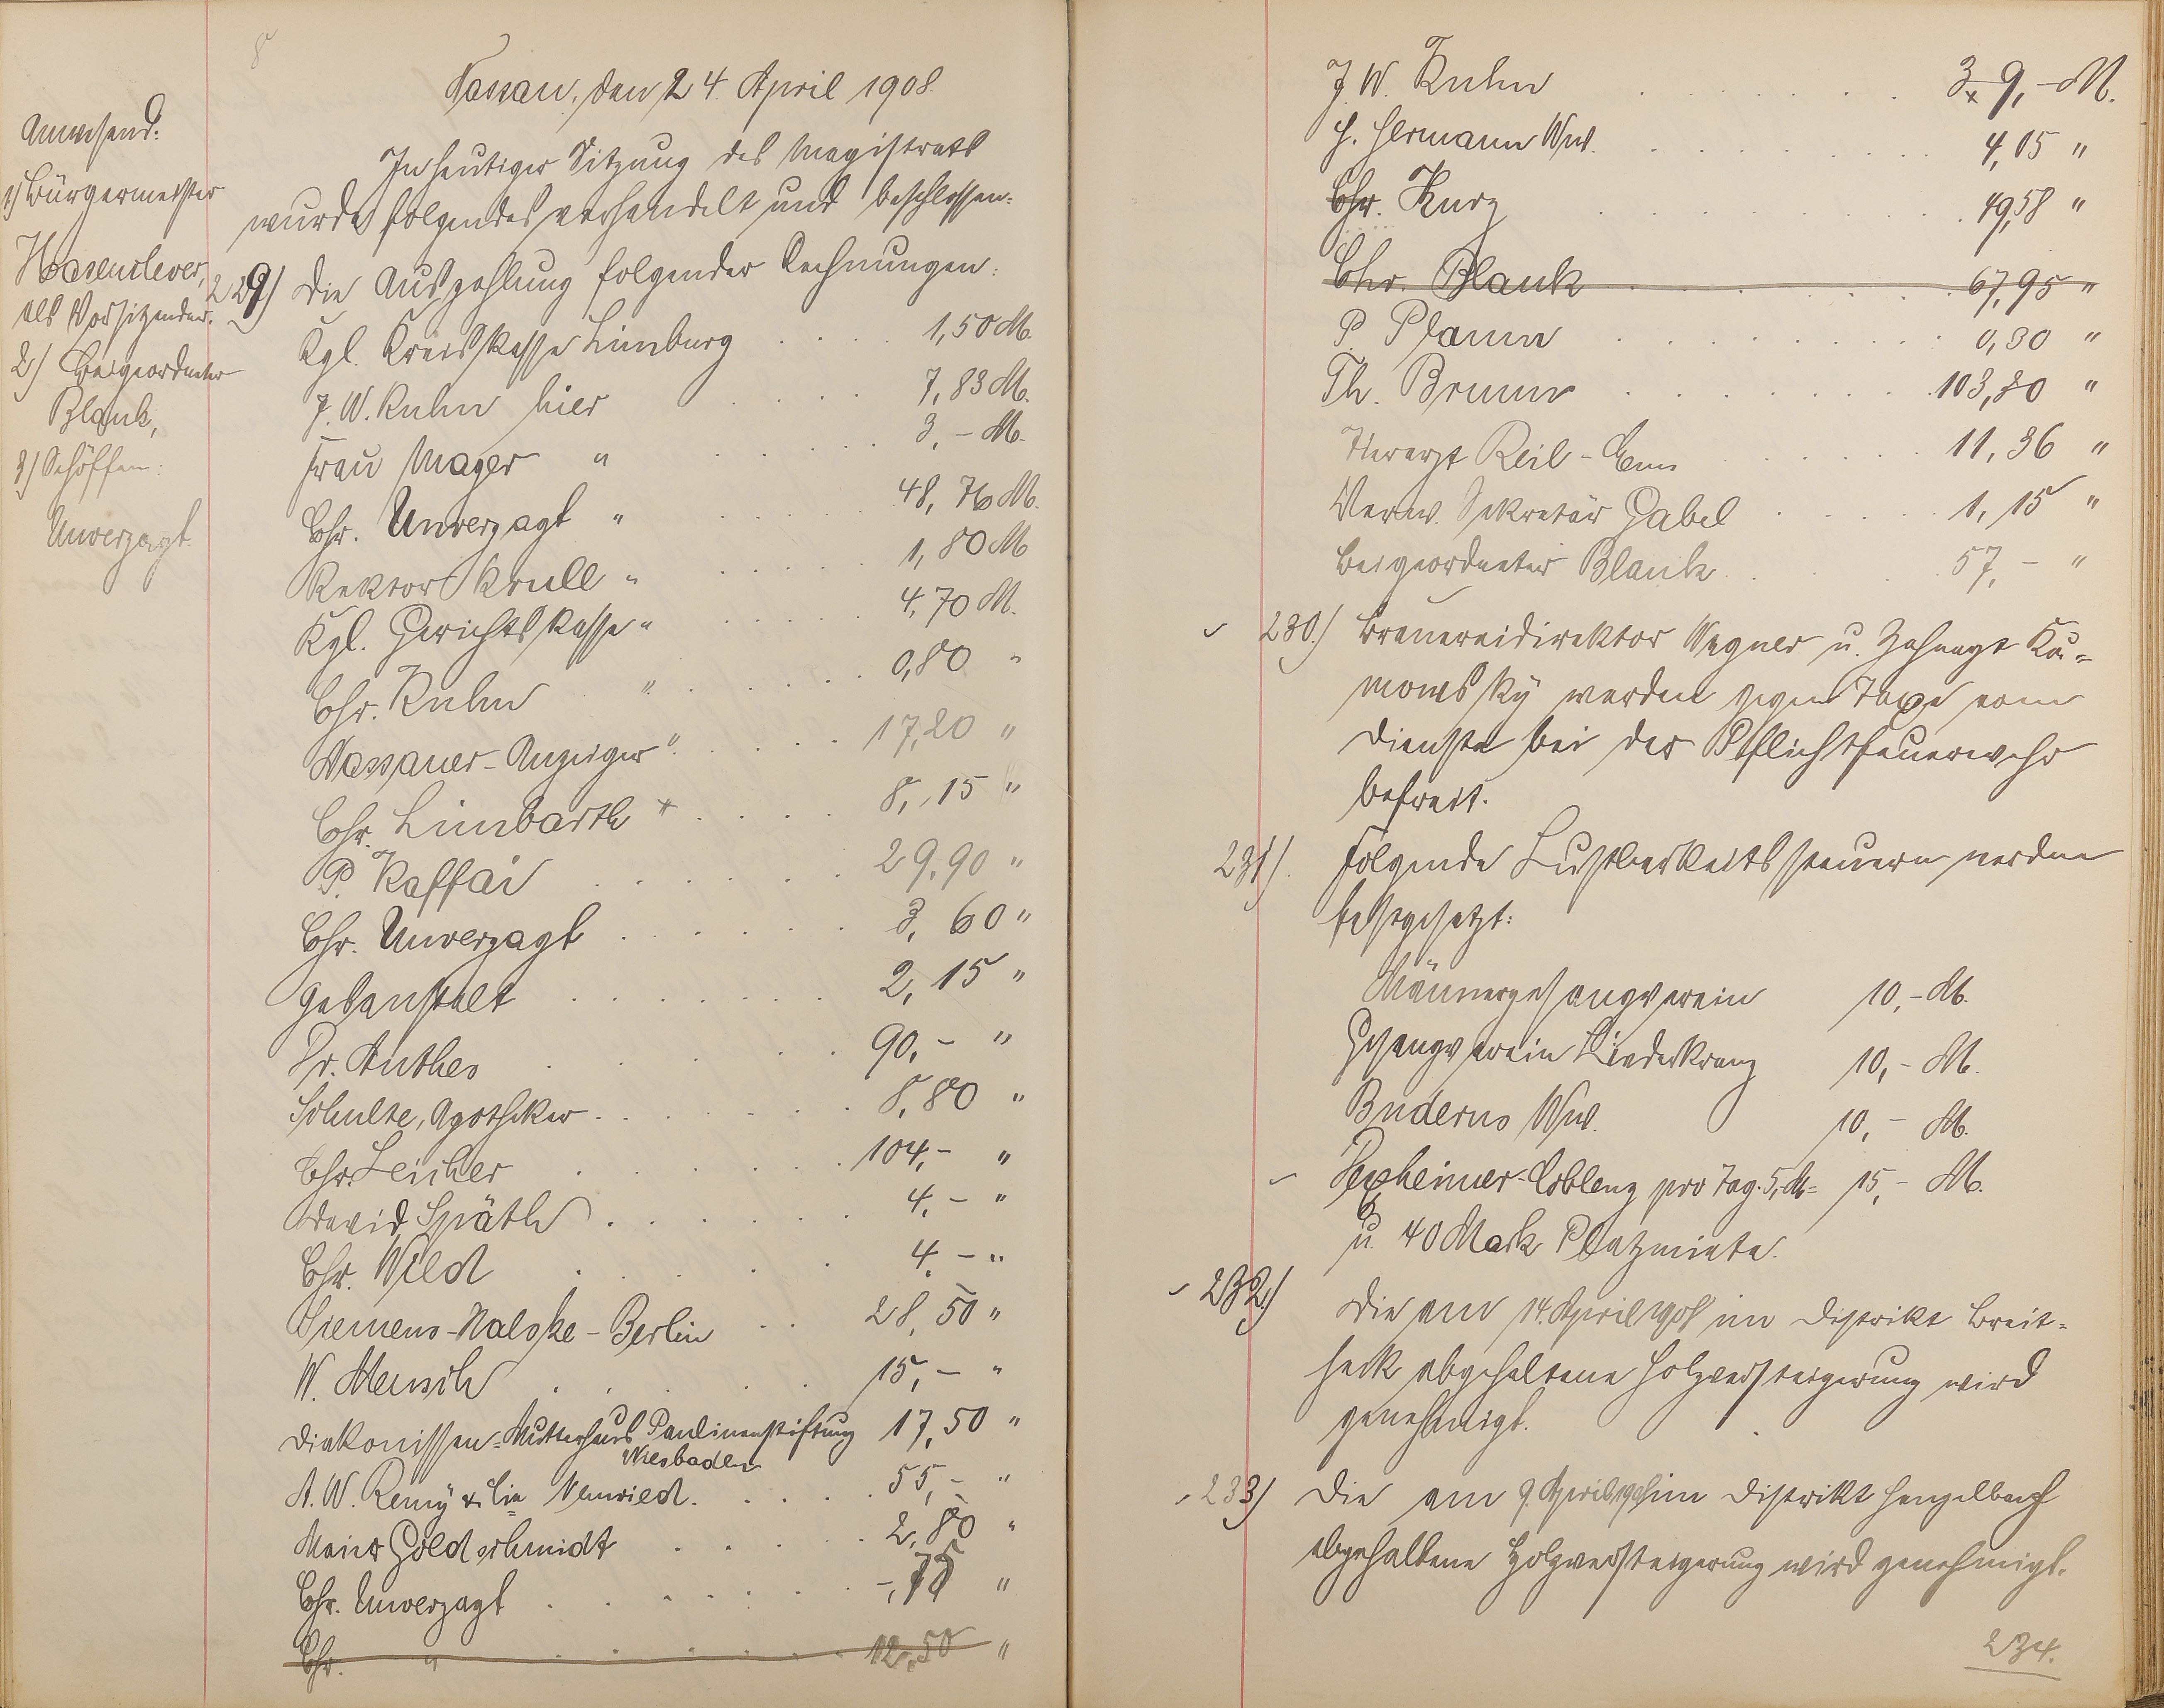 8
Nassau, den 24. April 1908.
Anwesend:
1) Bürgermeister
Hasenclever,
als Vorsitzender.
2) Beigeordneter
Blank,
3) Schöffen:
Unverzagt.
In heutiger Sitzung des Magistrats
wurde folgendes verhandelt und beschlossen:
229) Die Auszahlung folgender Rechnungen:
Kgl. Kreiskasse Limburg . . . . 1,50 M.
J. W. Kuhn hier . . . . 7,83 M.
Frau Mager " . . . . 3,- M.
Chr. Unverzagt " . . . . 48,76 M.
Rektor Krull " . . . . 1,80 M
Kgl. Gerichtskasse " . . . . 4,70 M.
Chr. Kuhn " . . . . 0,80 "
Nassauer-Anzeiger " . . . . 17,20 "
Chr. Limbarth + . . . . 8,15 "
P. Kaffai . . . . 29,90 "
Chr. Unverzagt . . . . 3,60 "
Gasanstalt . . . . 2,15 "
Dr. Anthes . . . . 90,- "
Schulte, Apotheker . . . . 8,80 "
Chr. Leicher . . . . 104,- "
David Späth . . . . 4,- "
Chr. Wild . . . . 4,- "
Siemens-Halske-Berlin . . 28,50 "
W. Mensch . . . . 15,- "
Diakonissen-Mutterhaus Paulinenstiftung 17,50 "
Wiesbaden
A. W. Remy & Cie Neuwied. . . . . 55,- "
Goldschmidt . . . . 2,80 "
Chr. Unverzagt . . . . -,75 "
Chr. " . . . . 12,50 "
J. W. Kuhn . . . . 39,- M.
H. Hermann Ww. . . . . 4,05 "
Chr. Kurz . . . . 49,58 "
Chr. Blank . . . . 67,95 "
P. Plamm . . . . 0,30 "
Th. Bruun . . . . 103,80 "
Tierarzt Reil-Ems . . . . 11,36 "
Verw. Sekretär Gabel . . . . 1,15 "
Beigeordneter Blank . . . . 57,- "
230.) Brauereidirektor Wegner u. Zahnarzt Ko-
mowsky werden gegen Taxe vom
Dienste bei der Pflichtfeuerwehr
befreit.
231). Folgende Lustbarkeitssteuern werden
festgesetzt:
Männergesangverein 10,- M.
Gesangverein Liederkranz 10,- M.
Buderus Ww. 10,- M.
Hexheimer-Coblenz pro Tag 5,M= 15,- M.
u. 40 Mark Platzmiete.
232.) Die am 14. April 1908 im Distrikt Breit-
heck abgehaltene Holzversteigerung wird
genehmigt.
233) Die am 9. April 1908 im Distrikt Hengelbach
abgehaltene Holzversteigerung wird genehmigt.
234.